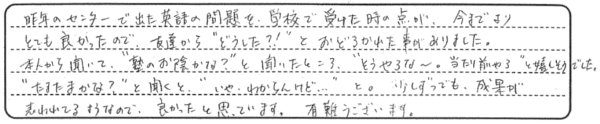 昨年のセンターで出た英語の問題を、学校で受けた時の点が、今までより
とても良かったので、友達から"どうした?!"とおどろかれた事がありました。
本人から聞いて、"塾のお陰かな?"と聞いたところ、"そうやろな〜。当たり前やろ"と嬉しそうでした。
"たまたまかな?"と聞くと、"いや、わからんけど…"と。少しずつでも、成果が
表われてるようなので、良かったと思っています。有難うございます。